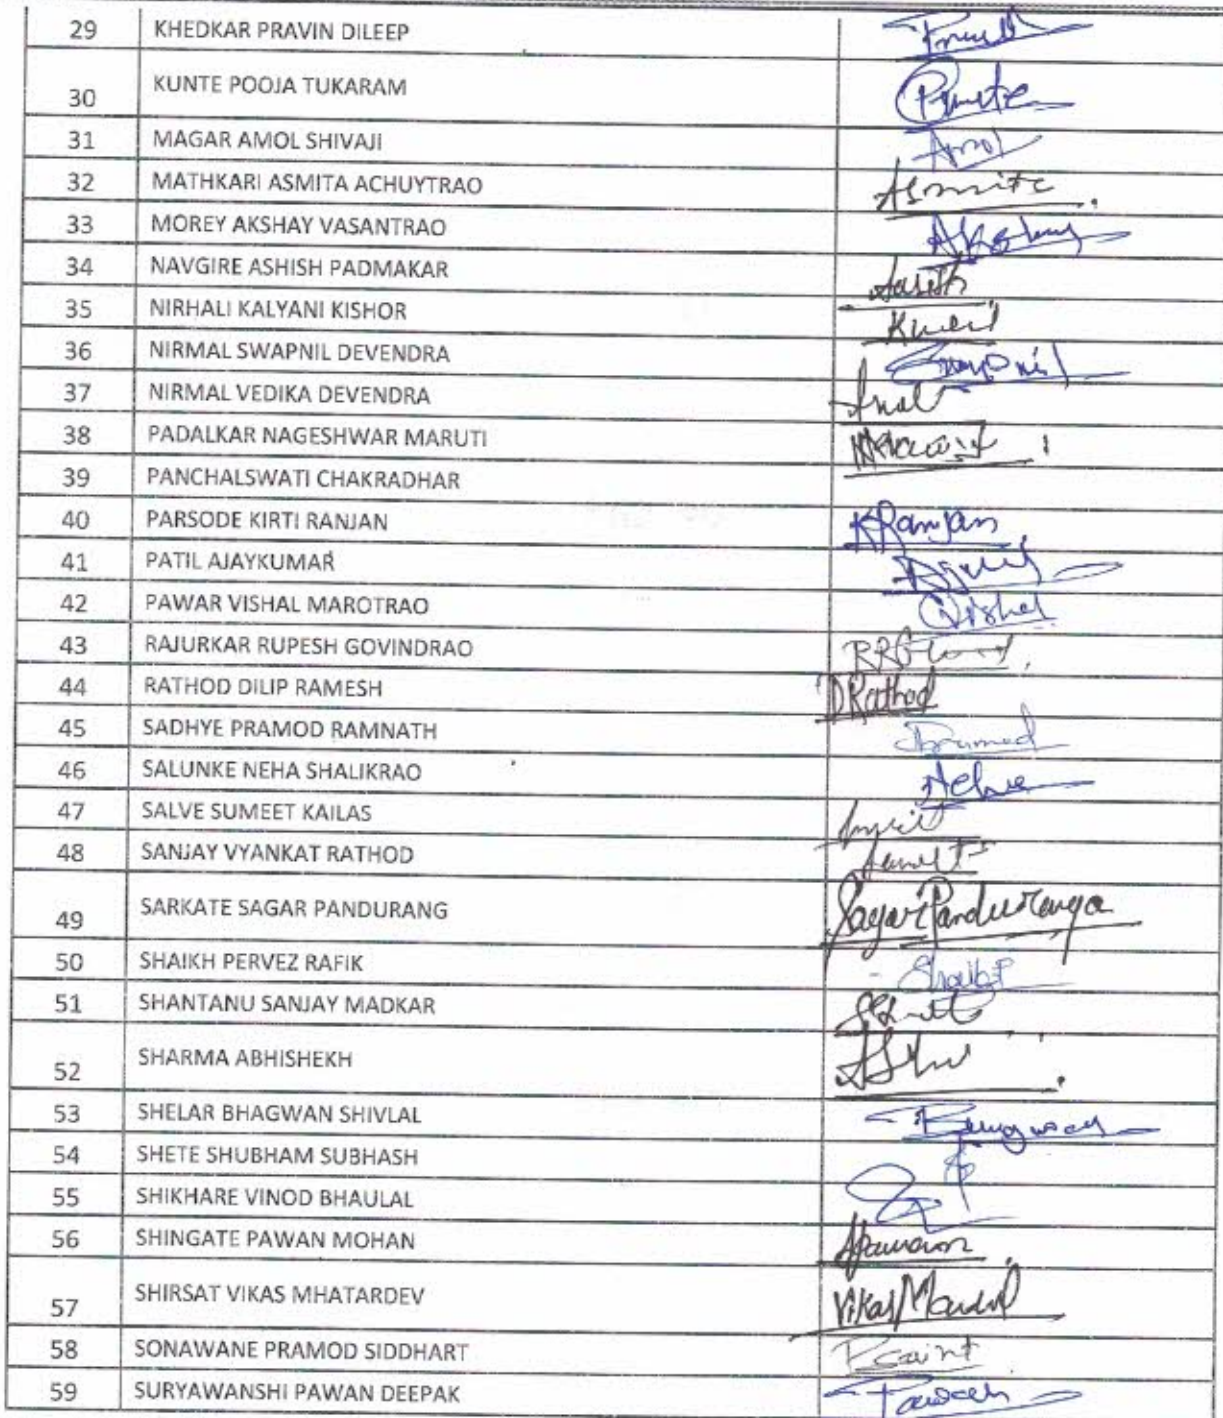 29 KHEDKAR PRAVIN DILEEP
30 KUNTE POOJA TUKARAM
31 MAGAR AMOL SHIVAJI Amol
32 MATHKARI ASMITA ACHUYTRAO Asmita
33 MOREY AKSHAY VASANTRAO
34 NAVGIRE ASHISH PADMAKAR
35 NIRHALI KALYANI KISHOR
36 NIRMAL SWAPNIL DEVENDRA
37 NIRMAL VEDIKA DEVENDRA
38 PADALKAR NAGESHWAR MARUTI
39 PANCHALSWATI CHAKRADHAR
40 PARSODE KIRTI RANJAN KRanjan
41 PATIL AJAYKUMAR
42 PAWAR VISHAL MAROTRAO Vishal
43 RAJURKAR RUPESH GOVINDRAO
44 RATHOD DILIP RAMESH DRathod
45 SADHYE PRAMOD RAMNATH
46 SALUNKE NEHA SHALIKRAO
47 SALVE SUMEET KAILAS
48 SANJAY VYANKAT RATHOD
49 SARKATE SAGAR PANDURANG
50 SHAIKH PERVEZ RAFIK
51 SHANTANU SANJAY MADKAR
52 SHARMA ABHISHEKH
53 SHELAR BHAGWAN SHIVLAL
54 SHETE SHUBHAM SUBHASH
55 SHIKHARE VINOD BHAULAL
56 SHINGATE PAWAN MOHAN
57 SHIRSAT VIKAS MHATARDEV Vikas
58 SONAWANE PRAMOD SIDDHART
59 SURYAWANSHI PAWAN DEEPAK